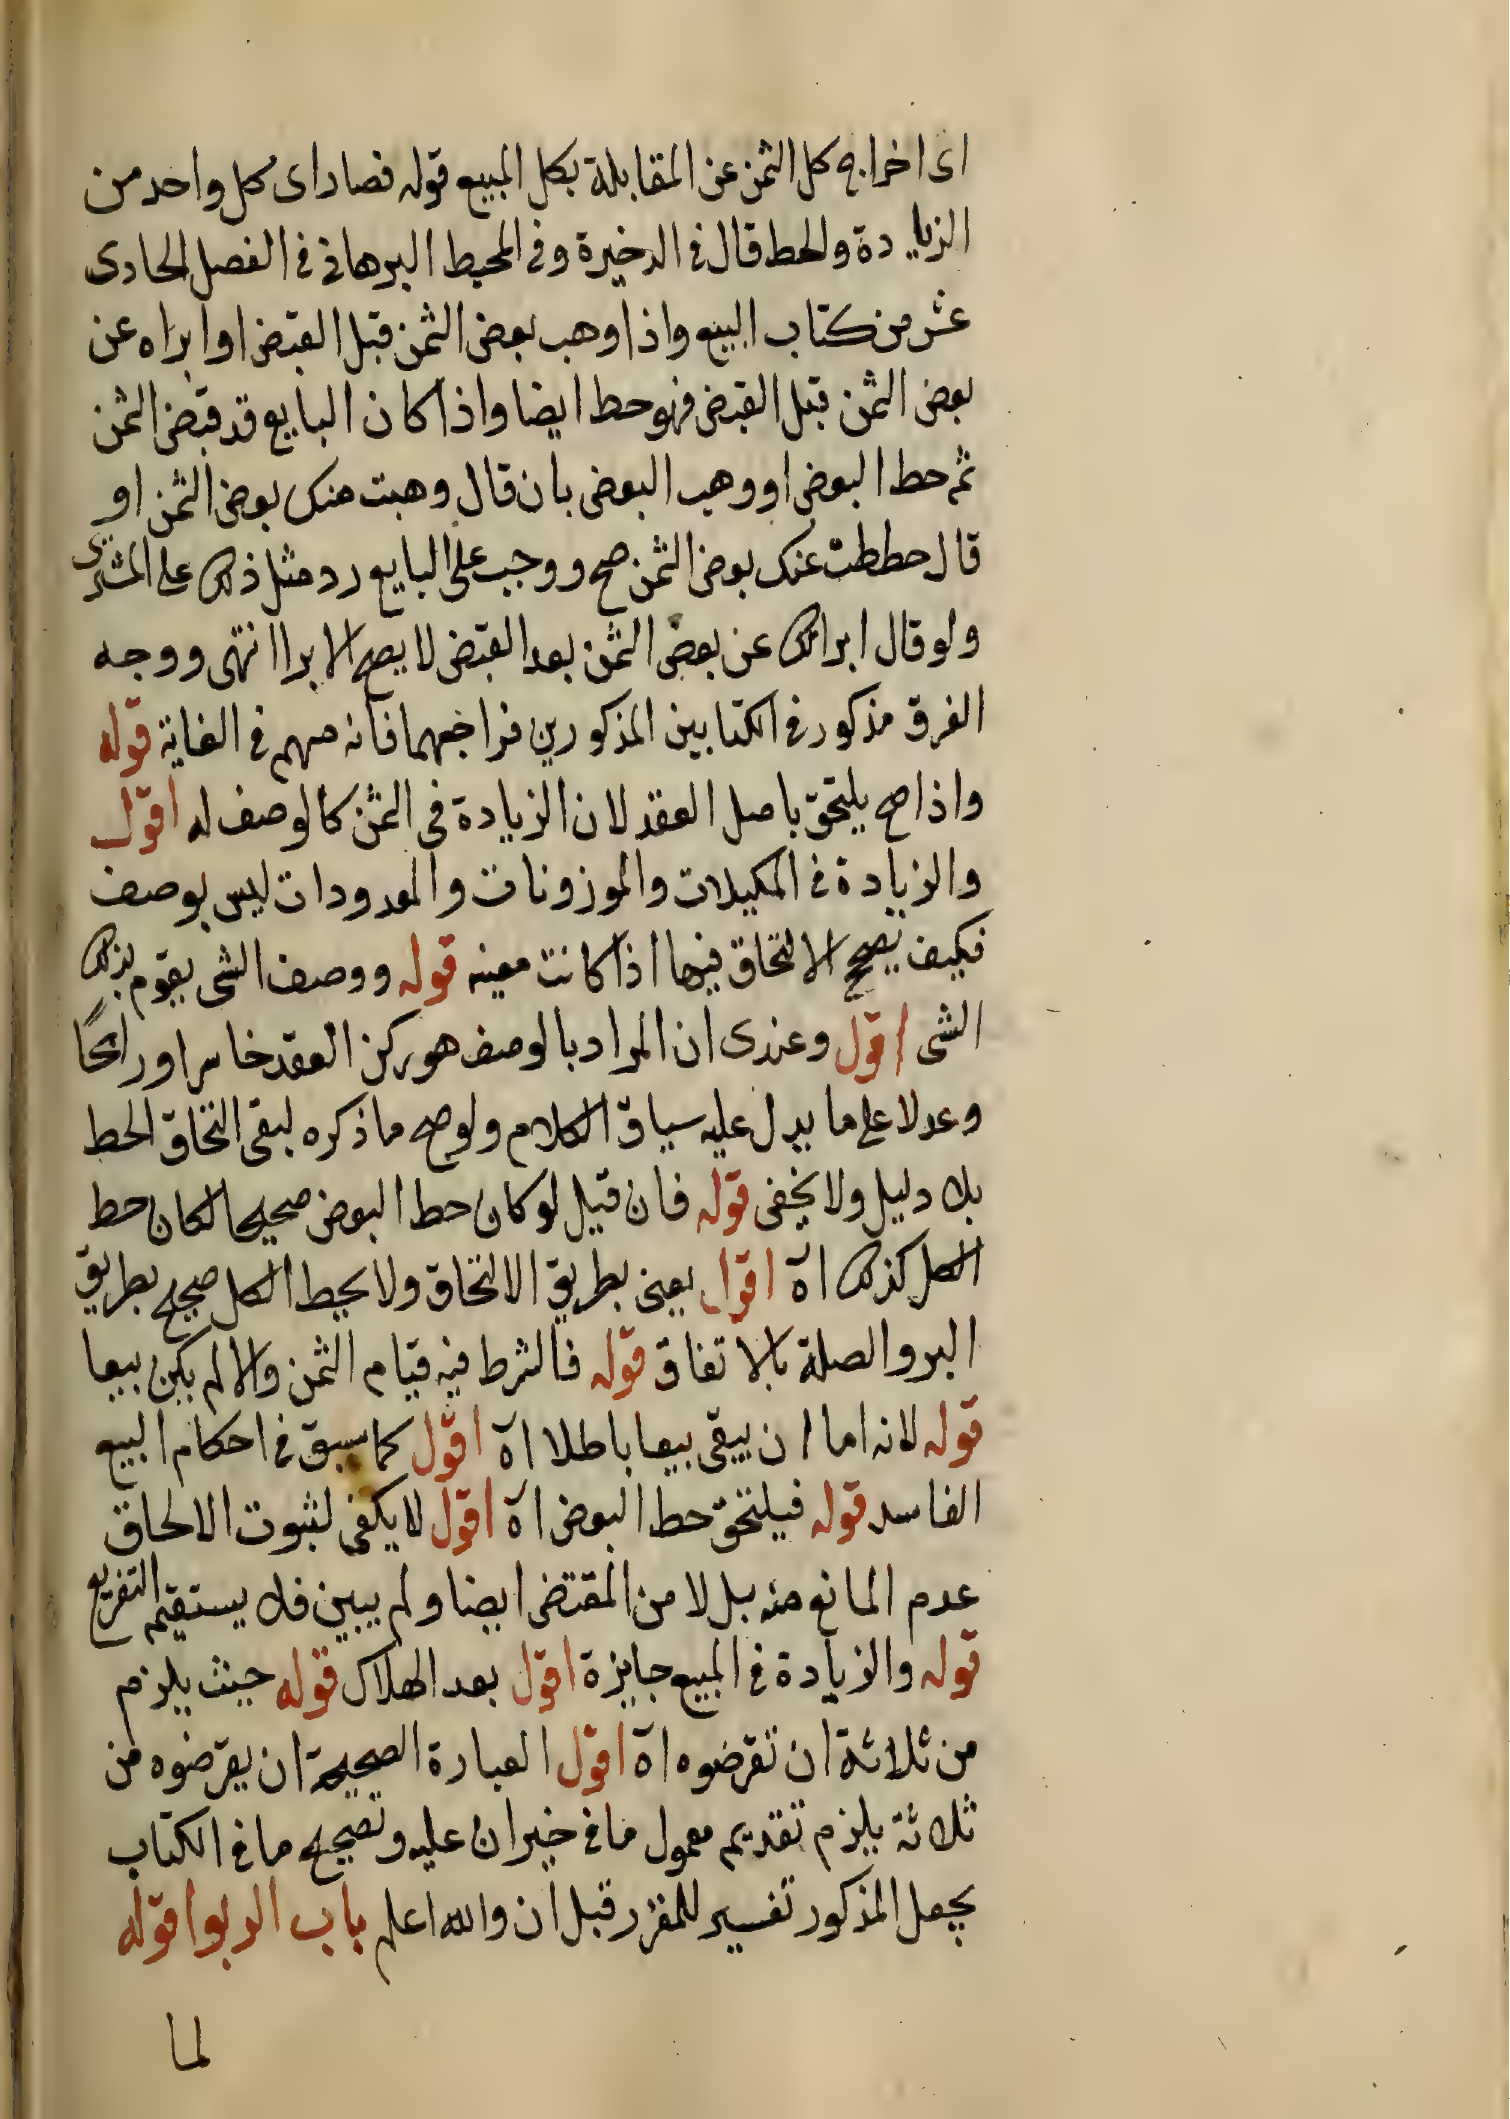 اى اخراج كل الثمن عن المقابلة بكل المبيع قوله فصاراى كل واحد من
الزيادة والحط قال فى الذخيرة وفى المحيط البرهانى فى الفصل الحادى
عشر من كتاب البيع واذا وهب بعض الثمن قبل القبض او ابراه عن
بعض الثمن قبل القبض فهو حط ايضا واذا كان البايع قد قبض الثمن
ثم حط البعض او وهب البعض بان قال وهبت منك بعض الثمن او
قال حططت عنك بعض الثمن صح ووجب على البايع رد مثل ذلك على المشترى
ولو قال ابراتك عن بعض الثمن بعد القبض لا يصح الابرا انتهى ووجه
الفرق مذكور فى الكتابين المذكورين فراجعهما فانه مهم فى الغاية قوله
واذا صح يلتحق باصل العقد لان الزيادة فى الثمن كالوصف له اقول
والزيادة فى المكيلات والموزونات والمعدودات ليس بوصف
فكيف يصح الالتحاق فيها اذا كانت معينه قوله ووصف الشى يقوم بذلك
الشى اقول وعندى ان المراد بالوصف هو ركن العقد خاسرا ورابحا
وعدلا على ما يدل عليه سياق الكلام ولو صح ما ذكره لبقى التحاق الحط
بلا دليل ولا يخفى قوله فان قيل لو كان حط البعض صحيحا لكان حط
الكل كذلك اه اقول يعنى بطريق الالتحاق ولا يحط الكل صحيح بطريق
البر والصلة بالاتفاق قوله فالشرط فيه قيام الثمن والا لم يكن بيعا
قوله لانه اما ان يبقى بيعا باطلا اه اقول كما سبق فى احكام البيع
الفاسد قوله فيلتحق حط البعض اه اقول لا يكفى لثبوت الالحاق
عدم المانع منه بل لا من المقتضى ايضا ولم يبين فلا يستقيم التفريع
قوله والزيادة فى المبيع جايزة اقول بعد الهلاك قوله حيث يلزم
من ثلاثة ان تقرضوه اه اقول العبارة الصحيحة ان يقرضوه من
ثلاثة يلزم تقديم معمول ما فى خيران عليه وتصحيح ما فى الكتاب
بجعل المذكور تفسير للمقرر قبل ان والله اعلم باب الربوا قوله
لما